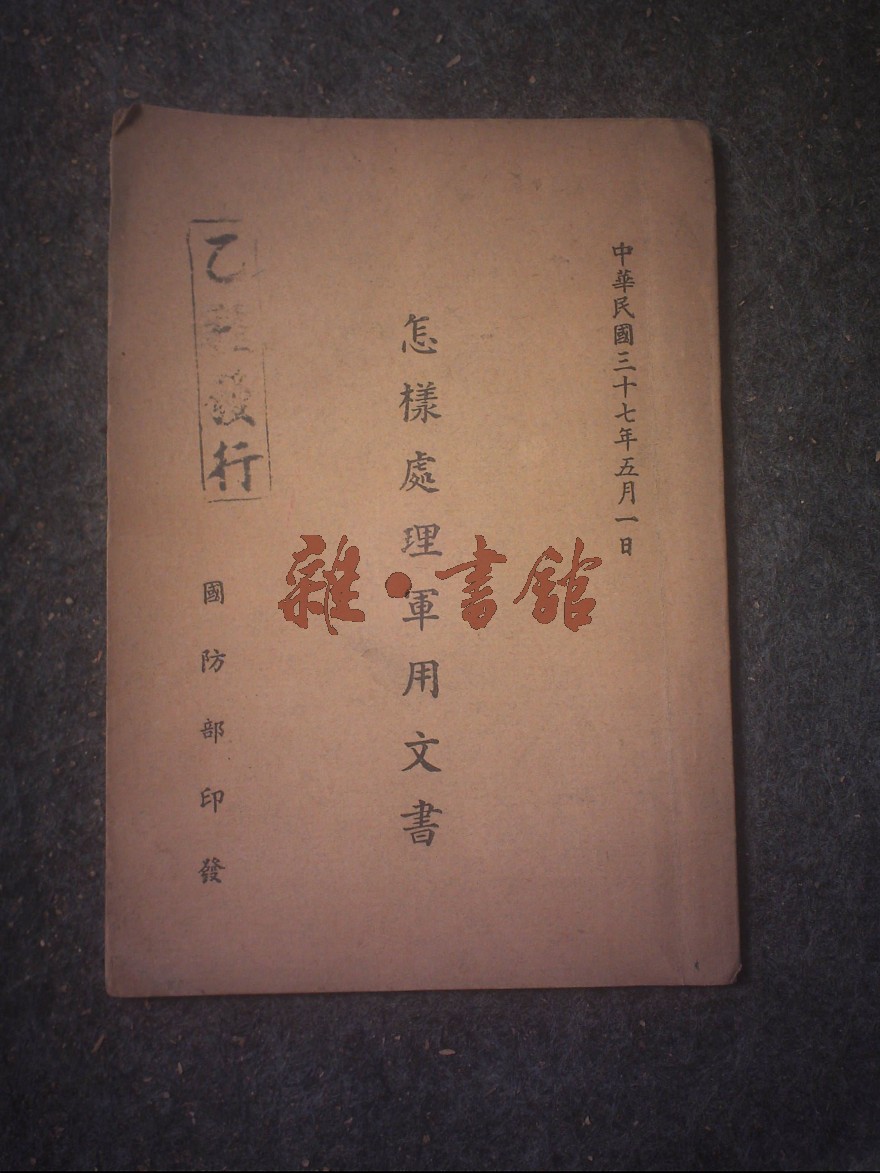 中華民國三十七年五月一日
怎樣處理軍用文書
乙種發行
國防部印發
雜·書館